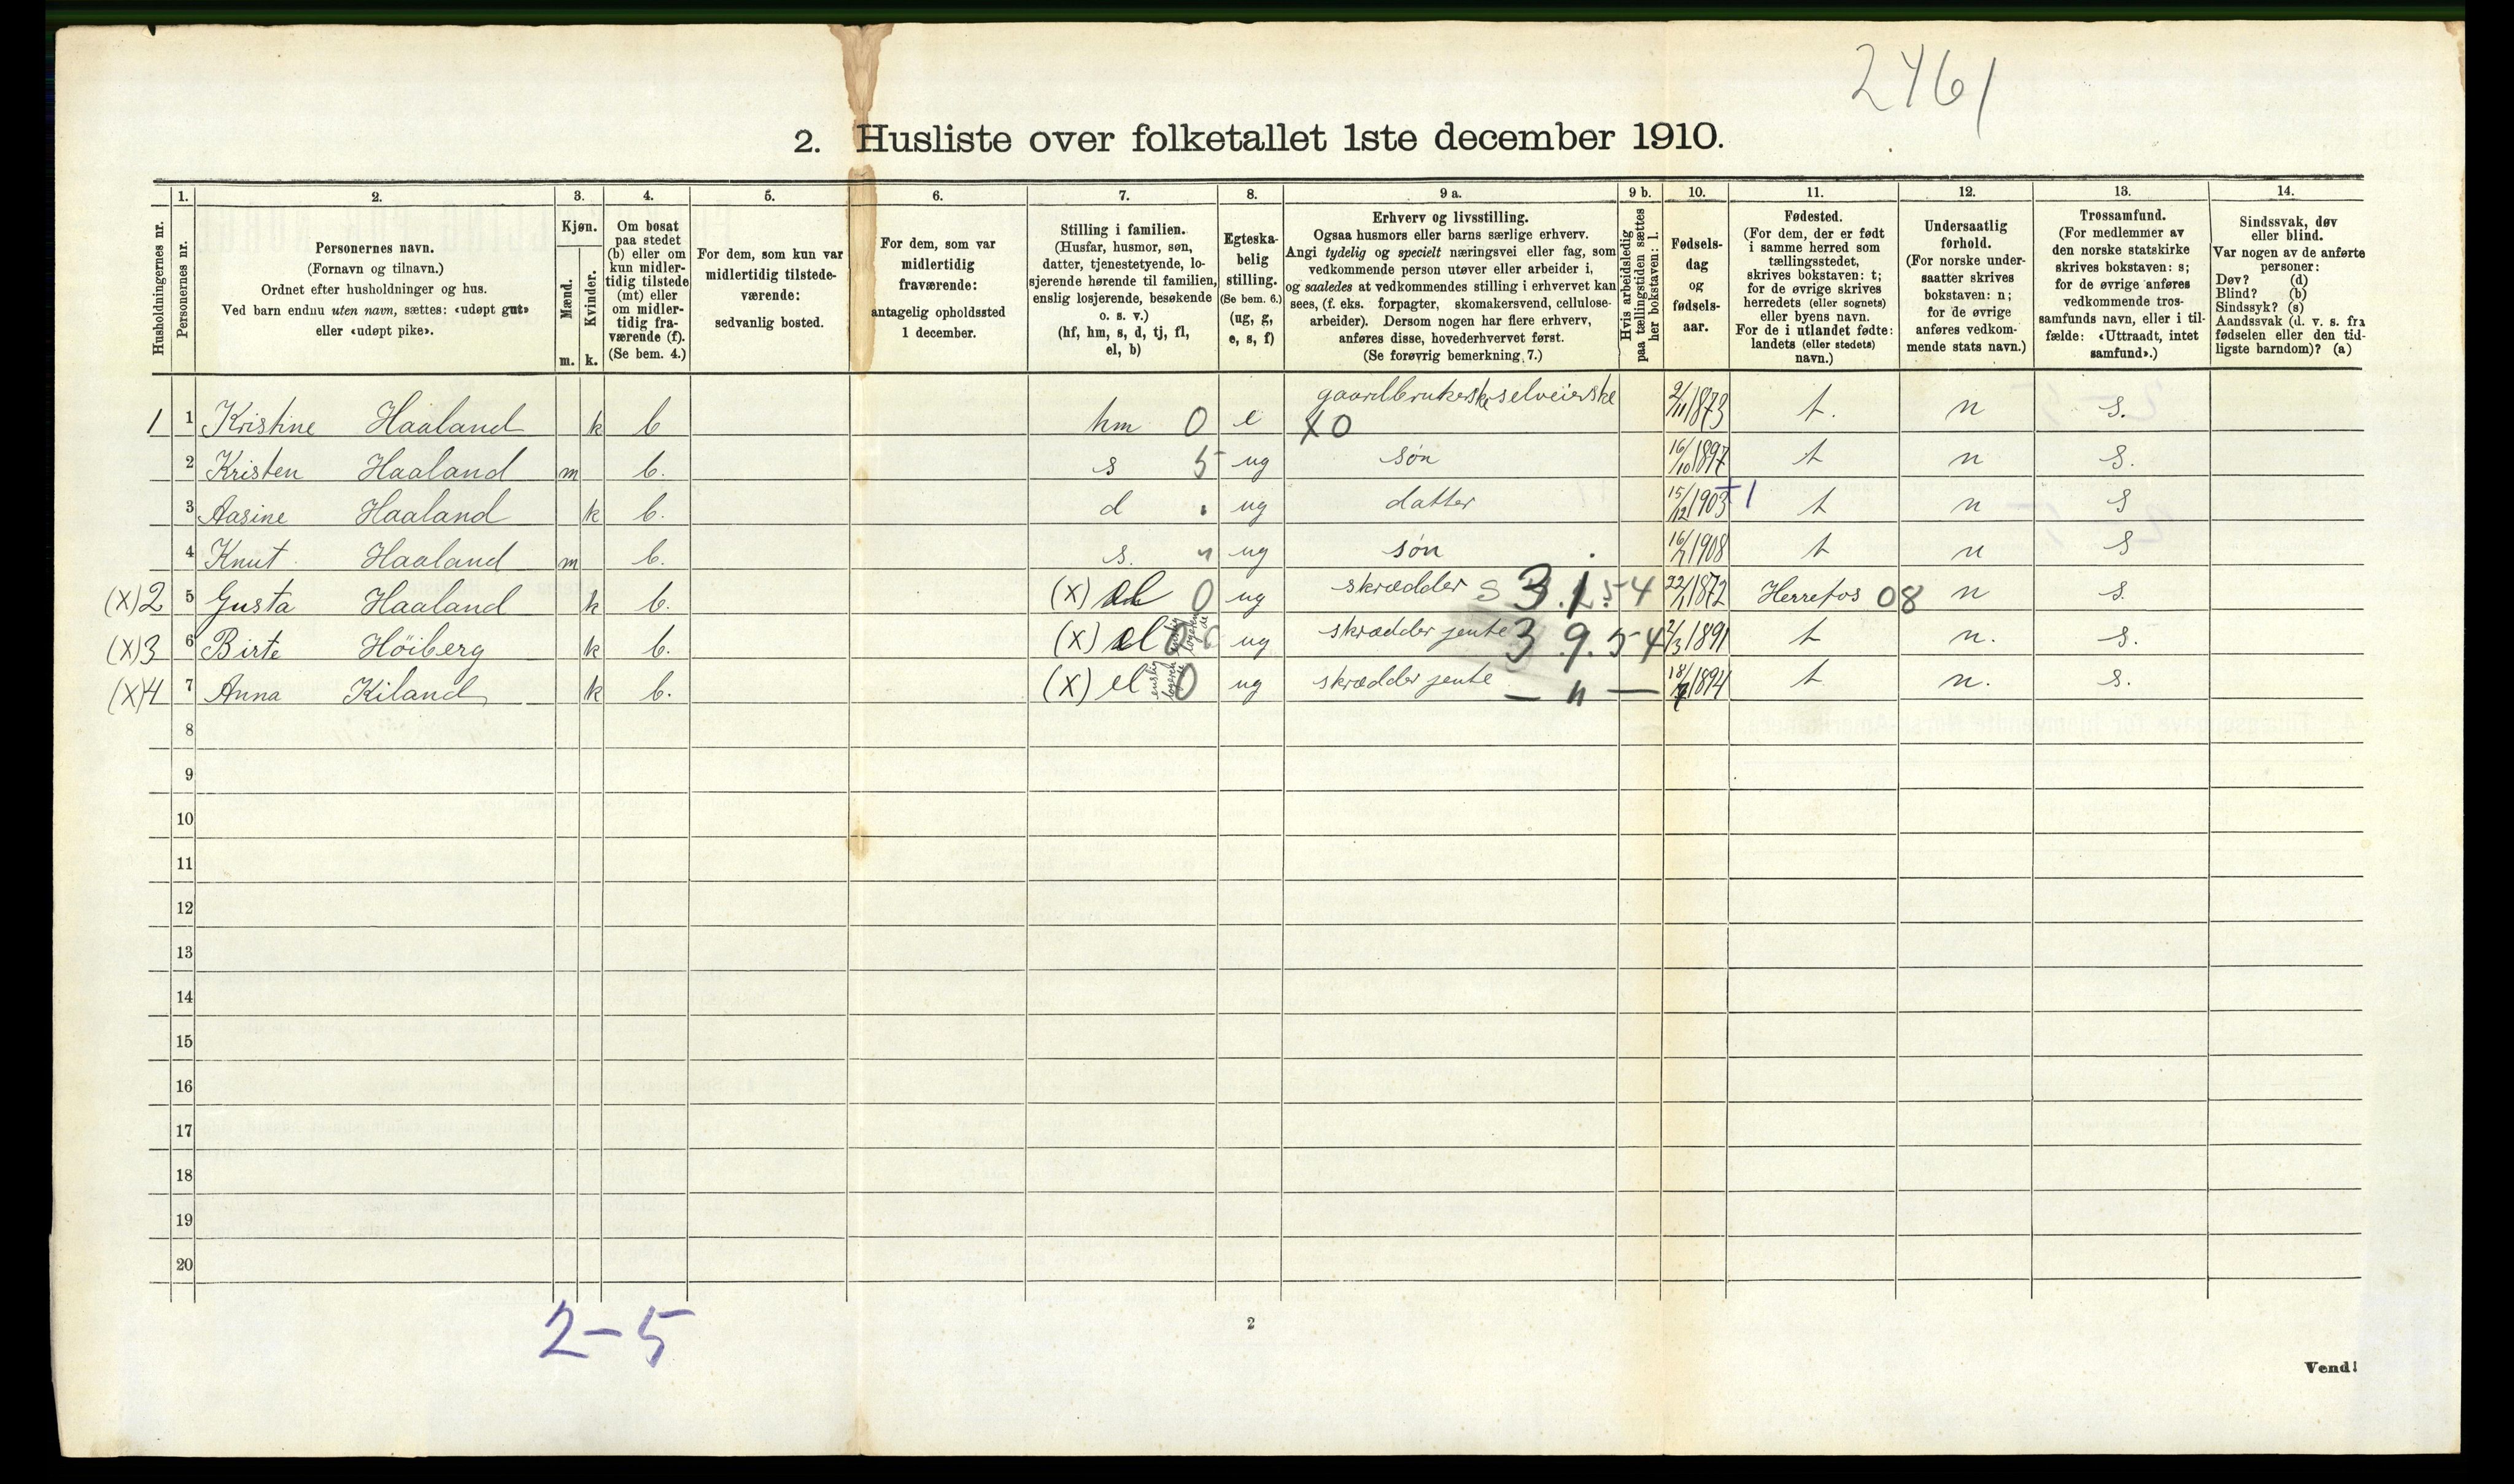 2461
2. Husliste over folketallet 1ste december 1910.
Husholdningernes nr.
1.
Personernes nr.
2.
Personernes navn.
(Fornavn og tilnavn.)
Ordnet efter husholdninger og hus.
Ved barn endnu uten navn, sættes: «udøpt gut»
eller «udøpt pike».
3.
Kjøn.
Mænd.
Kvinder.
m. k.
4.
Om bosat
paa stedet
(b) eller om
kun midler-
tidig tilstede
(mt) eller
om midler-
tidig fra-
værende (f).
(Se bem. 4.)
5.
For dem, som kun var
midlertidig tilstede-
værende:
sedvanlig bosted.
6.
For dem, som var
midlertidig
fraværende:
antagelig opholdssted
1 december.
7.
Stilling i familien.
(Husfar, husmor, søn,
datter, tjenestetyende, lo-
sjerende hørende til familien,
enslig losjerende, besøkende
o. s. v.)
(hf, hm, s, d, tj, fl,
el, b)
8.
Egteska-
belig
stilling.
(Se bem. 6.)
(ug, g,
e, s, f)
9 a.
Erhverv og livsstilling.
Ogsaa husmors eller barns særlige erhverv.
Angi tydelig og specielt næringsvei eller fag, som
vedkommende person utøver eller arbeider i,
og saaledes at vedkommendes stilling i erhvervet kan
sees, (f. eks. forpagter, skomakersvend, cellulose-
arbeider). Dersom nogen har flere erhverv,
anføres disse, hovederhvervet først.
(Se forøvrig bemerkning 7.)
9 b.
Hvis arbeidsledig
paa tællingstiden sættes
her bokstaven: l.
10.
Fødsels-
dag
og
fødsels-
aar.
11.
Fødested.
(For dem, der er født
i samme herred som
tællingsstedet,
skrives bokstaven: t;
for de øvrige skrives
herredets (eller sognets)
eller byens navn.
For de i utlandet fødte:
landets (eller stedets)
navn.)
12.
Undersaatlig
forhold.
(For norske under-
saatter skrives
bokstaven: n;
for de øvrige
anføres vedkom-
mende stats navn.)
13.
Trossamfund.
(For medlemmer av
den norske statskirke
skrives bokstaven: s;
for de øvrige anføres
vedkommende tros-
samfunds navn, eller i til-
fælde: «Uttraadt, intet
samfund».)
14.
Sindssvak, døv
eller blind.
Var nogen av de anførte
personer:
Døv? (d)
Blind? (b)
Sindssyk? (s)
Aandssvak (d. v. s. fra
fødselen eller den tid-
ligste barndom)? (a)
1 1 Kristine Haaland k b hm 0 e gaardbrukerske selveierske X0 2/11 1873 t. n s.
2 Kristen Haaland m b. s 5 ug søn 16/10 1897 t n s.
3 Aasine Haaland k b. d " ug datter 15/12 1903 +1 t n s
4 Knut Haaland m b. s. " ug søn 1908 t n s
(X) 2 5 Gusta Haaland k b. (X) el 0 ug skrædder s 3.1.54 22/1 1872 Herrefos 08 n s.
(X) 3 6 Birte Höiberg k b. (X) el enslig logerende 0 ug skrædder jente 3 9.54 2/3 1891 t n. s.
(X) 4 7 Anna Kiland k b. (X) el enslig logerende 0 ug skrædder jente — " — 1894 t n. s.
8
9
10
11
12
13
14
15
16
17
18
19
20
2-5
2
Vend!